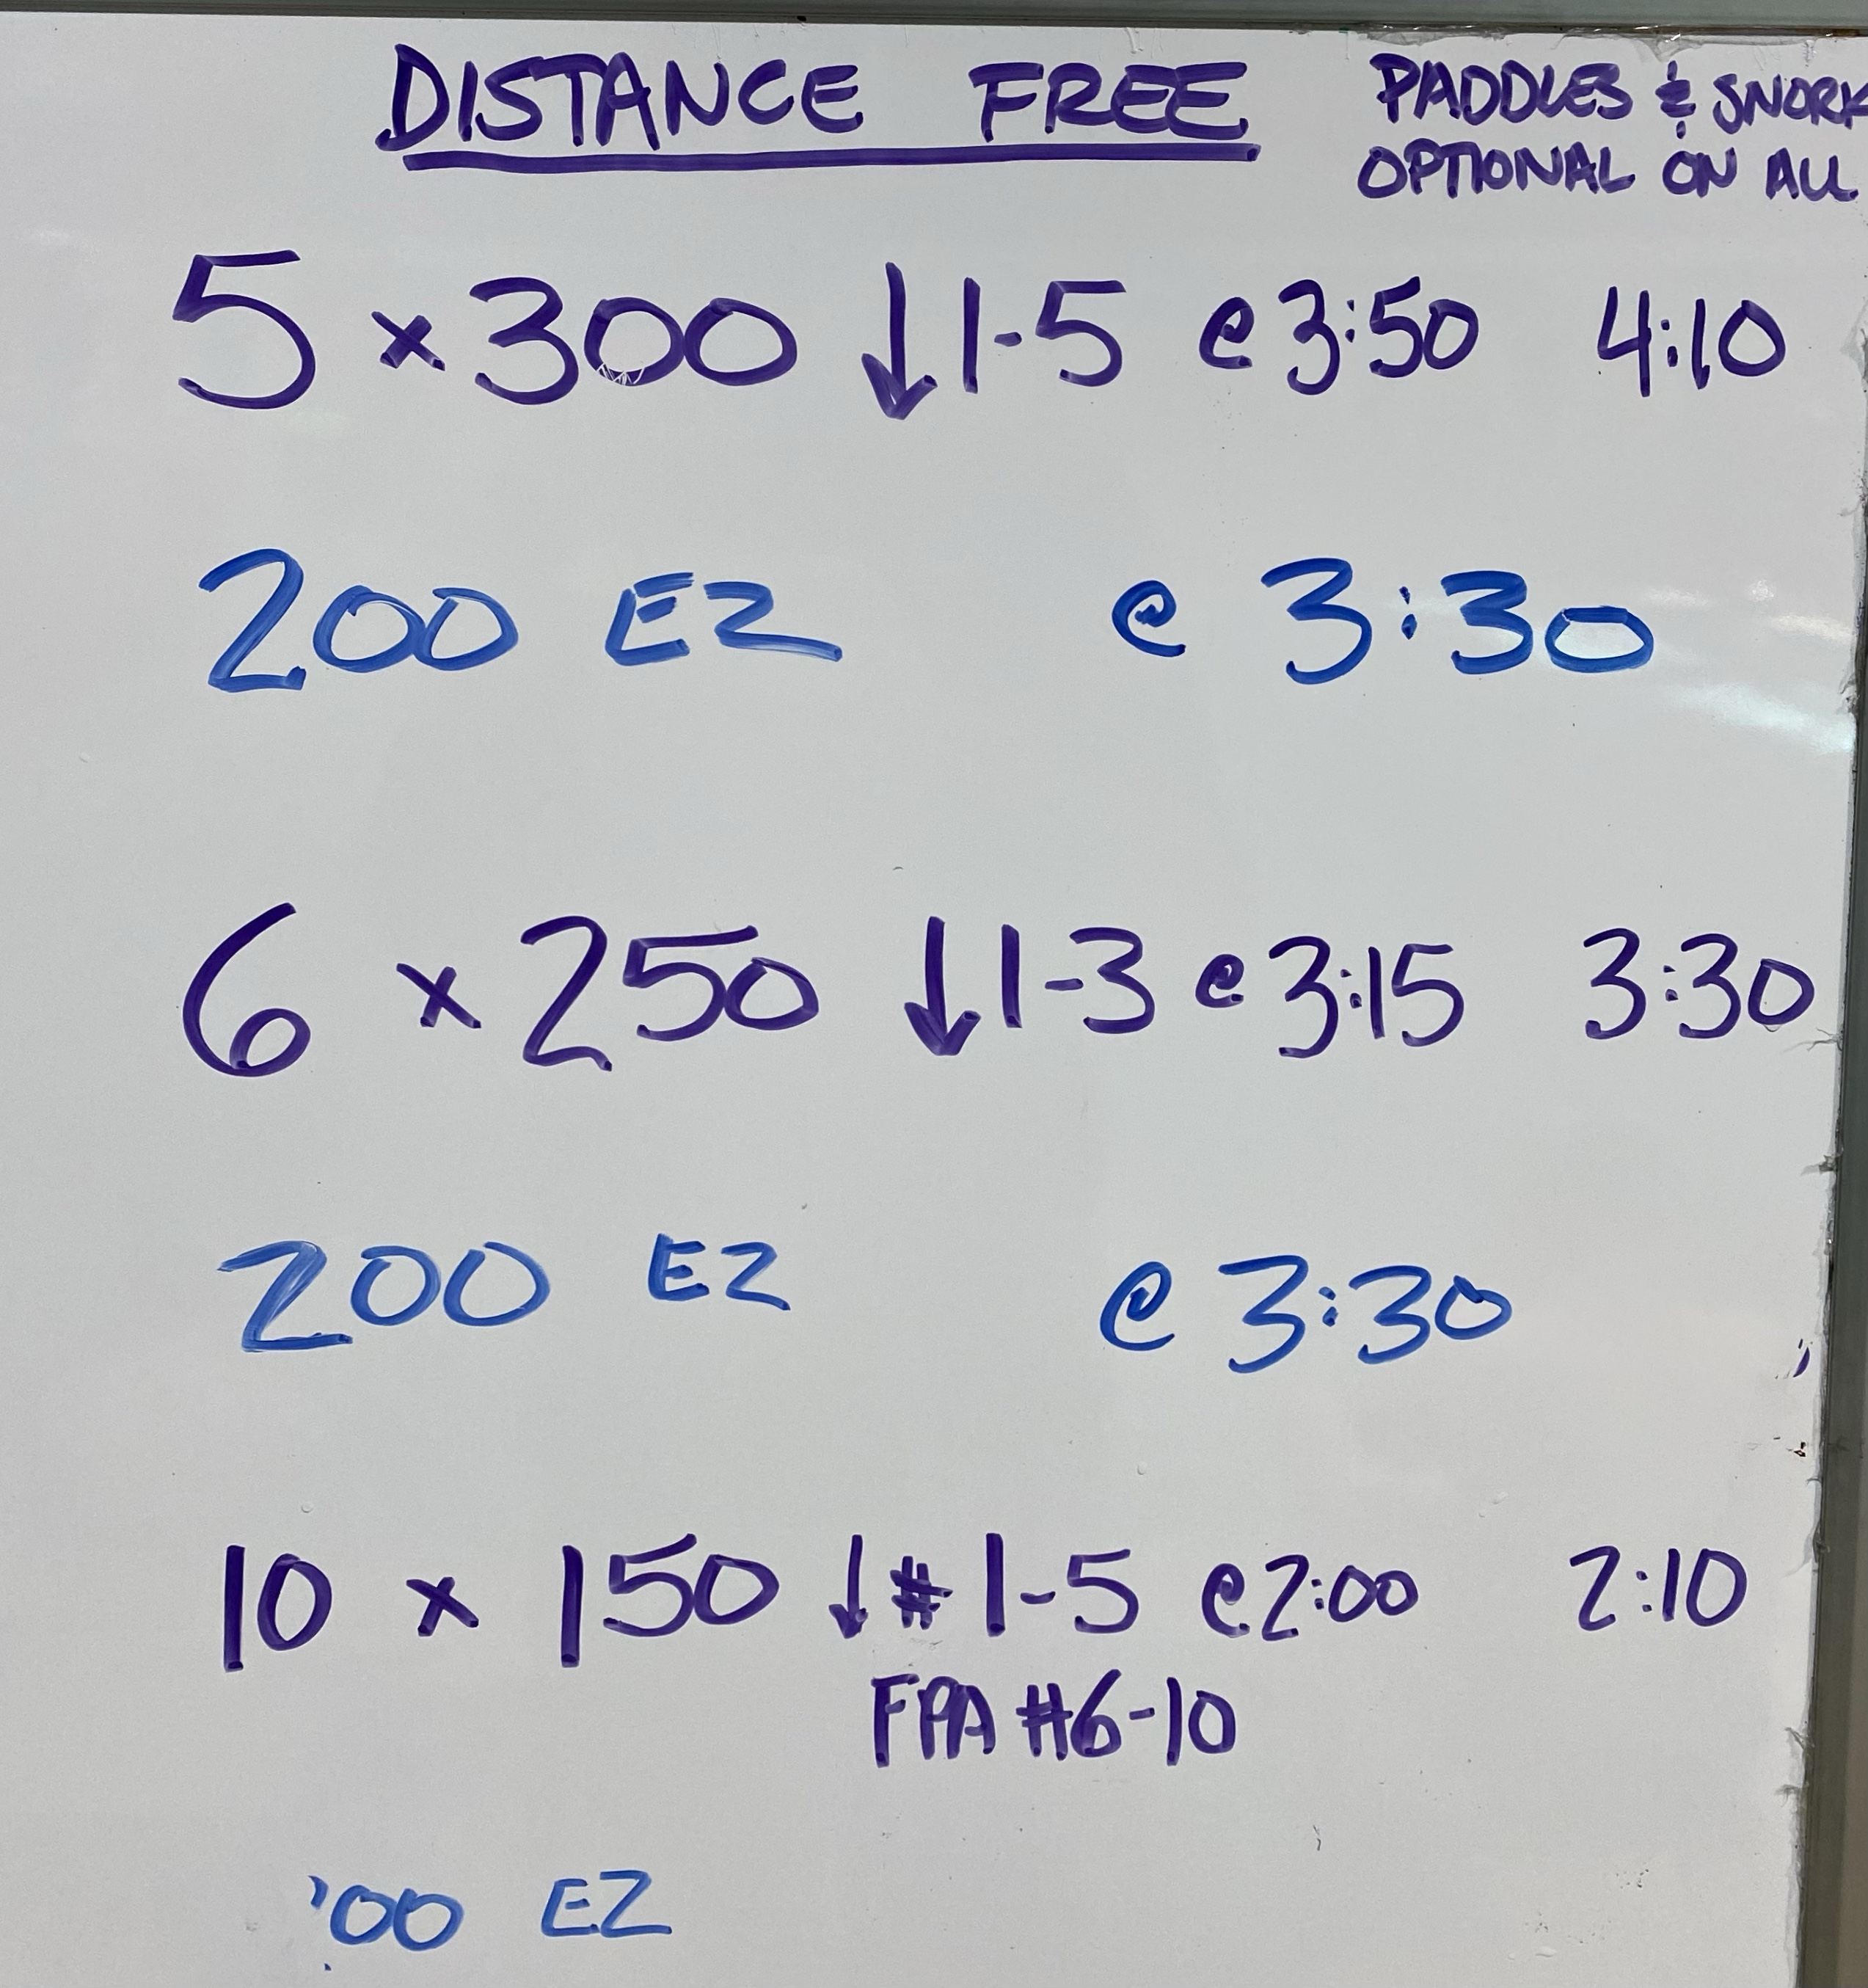 DISTANCE FREE
PADDLES & SNORK
OPTIONAL ON ALL
5 x 300 ↓ 1-5 @ 3:50 4:10
200 EZ @ 3:30
6 x 250 ↓ 1-3 @ 3:15 3:30
200 EZ @ 3:30
10 x 150 ↓ # 1-5 @ 2:00 2:10
FPA #6-10
EZ